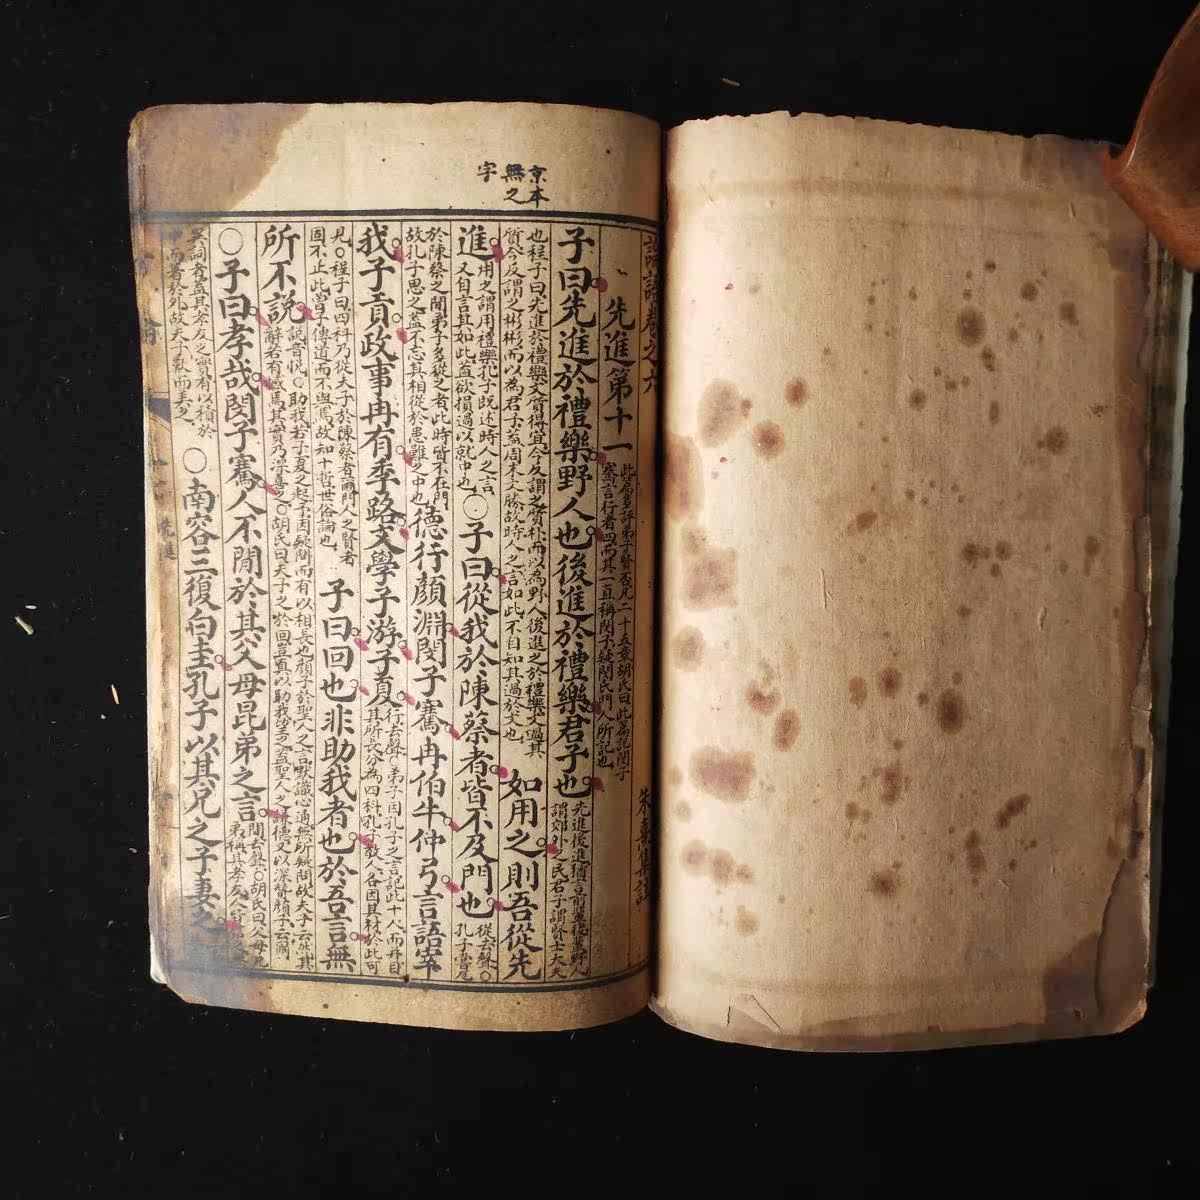 京本
無之
字
論語卷之六
朱熹集註
先進第十一
此篇多評弟子賢否凡二十五章胡氏曰此篇記閔子
騫言行者四而其一直稱閔子疑閔氏門人所記也
子曰先進於禮樂野人也後進於禮樂君子也
先進後進猶言前輩後輩野人
謂郊外之民君子謂賢士大夫
也程子曰先進於禮樂文質得宜今反謂之質朴而以為野人後進之於禮樂文過其
質今反謂之彬彬而以為君子蓋周末文勝故時人之言如此不自知其過於文也
如用之則吾從先
進
用之謂用禮樂孔子既述時人之言
又自言其如此蓋欲損過以就中也
○子曰從我於陳蔡者皆不及門也
從去聲○
孔子嘗厄
於陳蔡之間弟子多從之者此時皆不在門
故孔子思之蓋不忘其相從於患難之中也
德行顏淵閔子騫冉伯牛仲弓言語宰
我子貢政事冉有季路文學子游子夏
行去聲○弟子因孔子之言記此十人而并目
其所長分為四科孔子教人各因其材於此可
見○程子曰四科乃從夫子於陳蔡者爾門人之賢者
固不止此曾子傳道而不與焉故知十哲世俗論也
子曰回也非助我者也於吾言無
所不說
說音悅○助我若子夏之起予因疑問而有以相長也顏子於聖人之言默識心通無所疑問故夫子云然其
辭若有憾焉其實乃深喜之○胡氏曰夫子之於回豈真以助我望之蓋聖人之謙德又以深贊顏子云爾
○子曰孝哉閔子騫人不間於其父母昆弟之言
間去聲○胡氏曰父母兄
弟稱其孝友人皆
異詞者蓋其孝友之實有以積於
中而著於外故夫子歎而美之
○南容三復白圭孔子以其兄之子妻之
先進